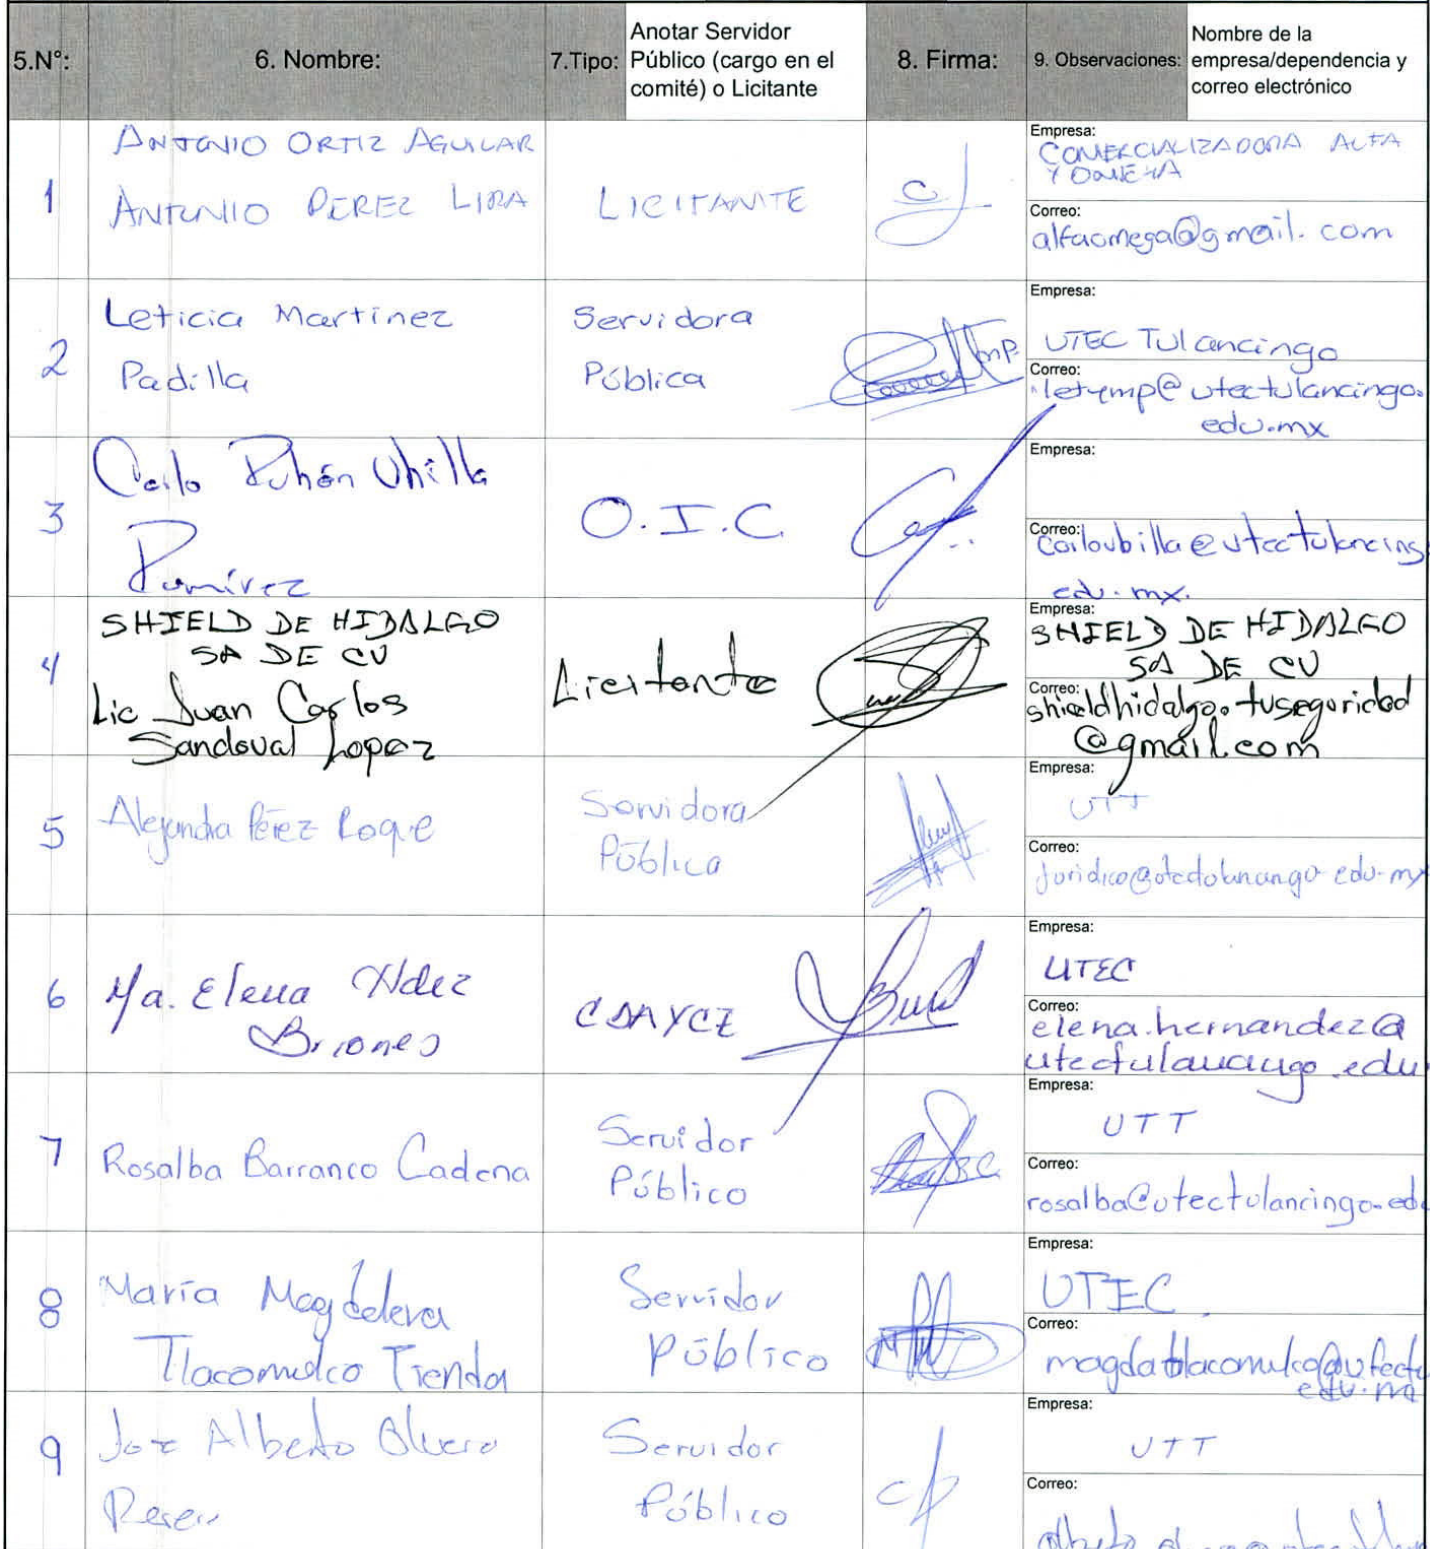 5.N°:
6. Nombre:
7.Tipo:
Anotar Servidor
Público (cargo en el
comité) o Licitante
8. Firma:
9. Observaciones:
Nombre de la
empresa/dependencia y
correo electrónico
1
ANTONIO ORTIZ AGUILAR
ANTONIO PEREZ LIRA
LICITANTE
Empresa:
COMERCIALIZADORA ALFA
Y OMEGA
Correo:
alfaomega@gmail.com
2
Leticia Martínez
Padilla
Servidora
Pública
Empresa:
UTEC Tulancingo
Correo:
letymp@utectulancingo.
edu.mx
3
Carlo Rubén Ubilla
Ramírez
O.I.C
Empresa:
Correo:
carloubilla@utectulancing
edu.mx.
4
SHIELD DE HIDALGO
SA DE CV
Lic Juan Carlos
Sandoval Lopez
Licitante
Empresa:
SHIELD DE HIDALGO
SA DE CV
Correo:
shieldhidalgo.tuseguridad
@gmail.com
5
Alejandra Pérez Roque
Servidora
Pública
Empresa:
UTT
Correo:
juridico@utectulancingo.edu.mx
6
Ma. Elena Hdez
Briones
Empresa:
UTEC
Correo:
elena.hernandez@
utectulancingo.edu
7
Rosalba Barranco Cadena
Servidor
Público
Empresa:
UTT
Correo:
rosalba@utectulancingo.edu
8
María Magdalena
Tlacomulco Tienda
Servidor
Público
Empresa:
UTEC
Correo:
magdatlacomulco@utectu
edu.mx
9
José Alberto Olvera
Servidor
Público
Empresa:
UTT
Correo: